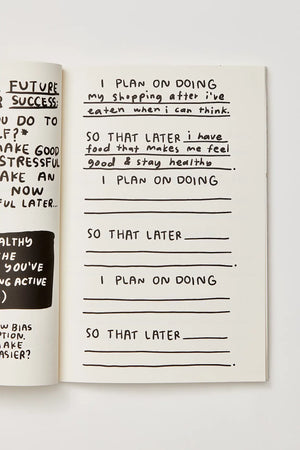 FUTURE
SUCCESS:
DO TO
MAKE GOOD
STRESSFUL
MAKE AN
NOW
LATER...
THE
YOU'VE
ACTIVE
BIAS
EASIER?
I PLAN ON DOING
my shopping after i've
eaten when i can think.
SO THAT LATER i have
food that makes me feel
good & stay healthy.
I PLAN ON DOING
SO THAT LATER
I PLAN ON DOING
SO THAT LATER